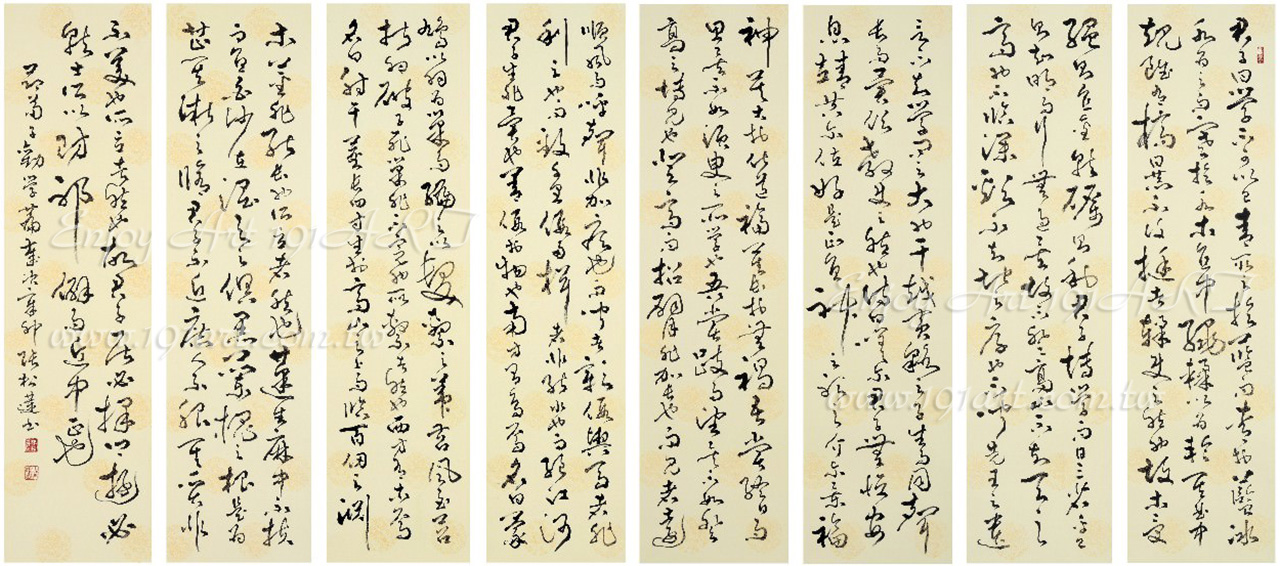 君子曰學不可以已青取之於藍而青於藍冰
水為之而寒於水木直中繩輮以為輪其曲中
規雖有槁暴不復挺者輮使之然也故木受
繩則直金就礪則利君子博學而日參省乎己
則知明而行無過矣故不登高山不知天之
高也不臨深谿不知地之厚也不聞先王之遺
言不知學問之大也干越夷貉之子生而同聲
長而異俗教使之然也詩曰嗟爾君子無恆安
息靖共爾位好是正直神之聽之介爾景福
神莫大於化道福莫長於無禍吾嘗終日而
思矣不如須臾之所學也吾嘗跂而望矣不如登
高之博見也登高而招臂非加長也而見者遠
順風而呼聲非加疾也而聞者彰假輿馬者非
利足也而致千里假舟楫者非能水也而絕江河
君子生非異也善假於物也南方有鳥焉名曰蒙
鳩以羽為巢而編之以髮繫之葦苕風至苕
折卵破子死巢非不完也所繫者然也西方有木焉
名曰射干莖長四寸生於高山之上而臨百仞之淵
木莖非能長也所立者然也蓬生麻中不扶
而直白沙在涅與之俱黑蘭槐之根是為
芷其漸之滫君子不近庶人不服其質非
不美也所漸者然也故君子居必擇鄉遊必
就士所以防邪僻而近中正也
節荀子勸學篇歲次辛卯張松蓮書
Enjoy Art 191ART
www.191art.com.tw
Enjoy Art 191ART
www.191art.com.tw